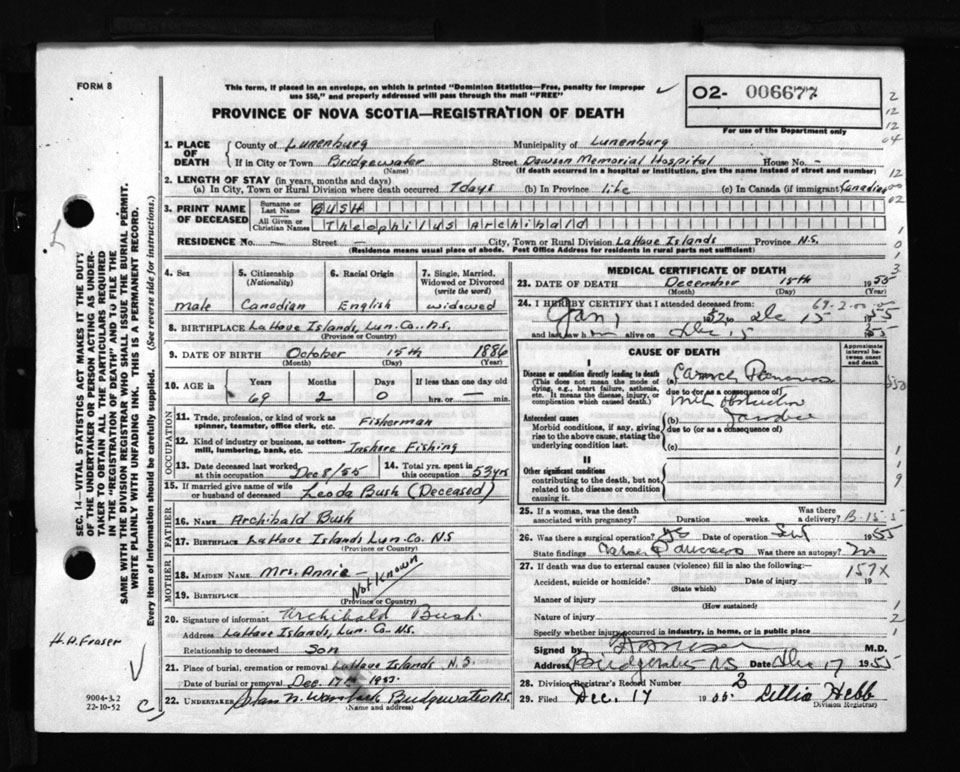 FORM 8
This form, if placed in an envelope, on which is printed "Dominion Statistics—Free, penalty for improper
use $50," and properly addressed will pass through the mail "FREE"
PROVINCE OF NOVA SCOTIA—REGISTRATION OF DEATH
02- 006677
For use of the Department only
1. PLACE OF DEATH
County of Lunenburg Municipality of Lunenburg
If in City or Town Bridgewater Street Dawson Memorial Hospital House No. -
(Name) (If death occurred in a hospital or institution, give the name instead of street and number)
2. LENGTH OF STAY (in years, months and days)
(a) In City, Town or Rural Division where death occurred 7days (b) In Province life (c) In Canada (if immigrant) Canadian
3. PRINT NAME OF DECEASED
Surname or Last Name BUSH
All Given or Christian Names Theophilus Archibald
RESIDENCE No. — Street — City, Town or Rural Division LaHave Islands Province N.S.
(Residence means usual place of abode. Post Office Address for residents in rural parts not sufficient)
4. Sex
male
5. Citizenship
(Nationality)
Canadian
6. Racial Origin
English
7. Single, Married,
Widowed or Divorced
(write the word)
widowed
8. BIRTHPLACE LaHave Islands, Lun. Co. N.S.
(Province or Country)
9. DATE OF BIRTH October 15th 1886
(Month) (Day) (Year)
10. AGE in
Years Months Days If less than one day old
69 2 0 hrs. or — min.
OCCUPATION
11. Trade, profession, or kind of work as
spinner, teamster, office clerk, etc. Fisherman
12. Kind of industry or business, as cotton-
mill, lumbering, bank, etc. Inshore Fishing
13. Date deceased last worked
at this occupation Dec 8/55
14. Total yrs. spent in
this occupation 53yrs
15. If married give name of wife
or husband of deceased Leoda Bush (Deceased)
FATHER
16. NAME Archibald Bush
17. BIRTHPLACE LaHave Islands Lun. Co. N.S
(Province or Country)
MOTHER
18. MAIDEN NAME Mrs. Annie —
19. BIRTHPLACE Not Known
(Province or Country)
20. Signature of informant Archibald Bush.
Address LaHave Islands, Lun. Co. N.S.
Relationship to deceased Son
21. Place of burial, cremation or removal LaHave Islands N.S.
Date of burial or removal Dec. 17th 1955
22. UNDERTAKER Bridgewater N.S.
(Name and address)
MEDICAL CERTIFICATE OF DEATH
23. DATE OF DEATH December 15th 1955
(Month) (Day) (Year)
24. I HEREBY CERTIFY that I attended deceased from
Jan 1 Dec 15 1955
and last saw him alive on Dec 15 1955
CAUSE OF DEATH
Approximate
interval between
onset
and death
I
Disease or condition directly leading to death
(This does not mean the mode of
dying, e.g., heart failure, asthenia,
etc. It means the disease, injury, or
complication which caused death.)
(a)
due to (or as a consequence of)
Antecedent causes
Morbid conditions, if any, giving
rise to the above cause, stating the
underlying condition last.
(b)
due to (or as a consequence of)
(c)
II
Other significant conditions
contributing to the death, but not
related to the disease or condition
causing it.
25. If a woman, was the death
associated with pregnancy? Duration weeks. Was there
a delivery?
26. Was there a surgical operation? yes Date of operation Sept 1955
State findings Was there an autopsy? no
27. If death was due to external causes (violence) fill in also the following:— 157X
Accident, suicide or homicide? Date of injury 19
(State which)
Manner of injury
(How sustained)
Nature of injury
Specify whether injury occurred in industry, in home, or in public place
Signed by M.D.
Address Bridgewater N.S Date Dec 17 1955
28. Division Registrar's Record Number
29. Filed Dec. 17 1955. Lillia Hebb
Division Registrar
SEC. 14—VITAL STATISTICS ACT MAKES IT THE DUTY
OF THE UNDERTAKER OR PERSON ACTING AS UNDER-
TAKER TO OBTAIN ALL THE PARTICULARS REQUIRED
IN THE "REGISTRATION OF DEATH" AND TO FILE THE
SAME WITH THE DIVISION REGISTRAR WHO SHALL ISSUE THE BURIAL PERMIT.
WRITE PLAINLY WITH UNFADING INK. THIS IS A PERMANENT RECORD.
Every item of information should be carefully supplied. (See reverse side for instructions.)
H.A. Fraser
9004-3.2
22-10-52